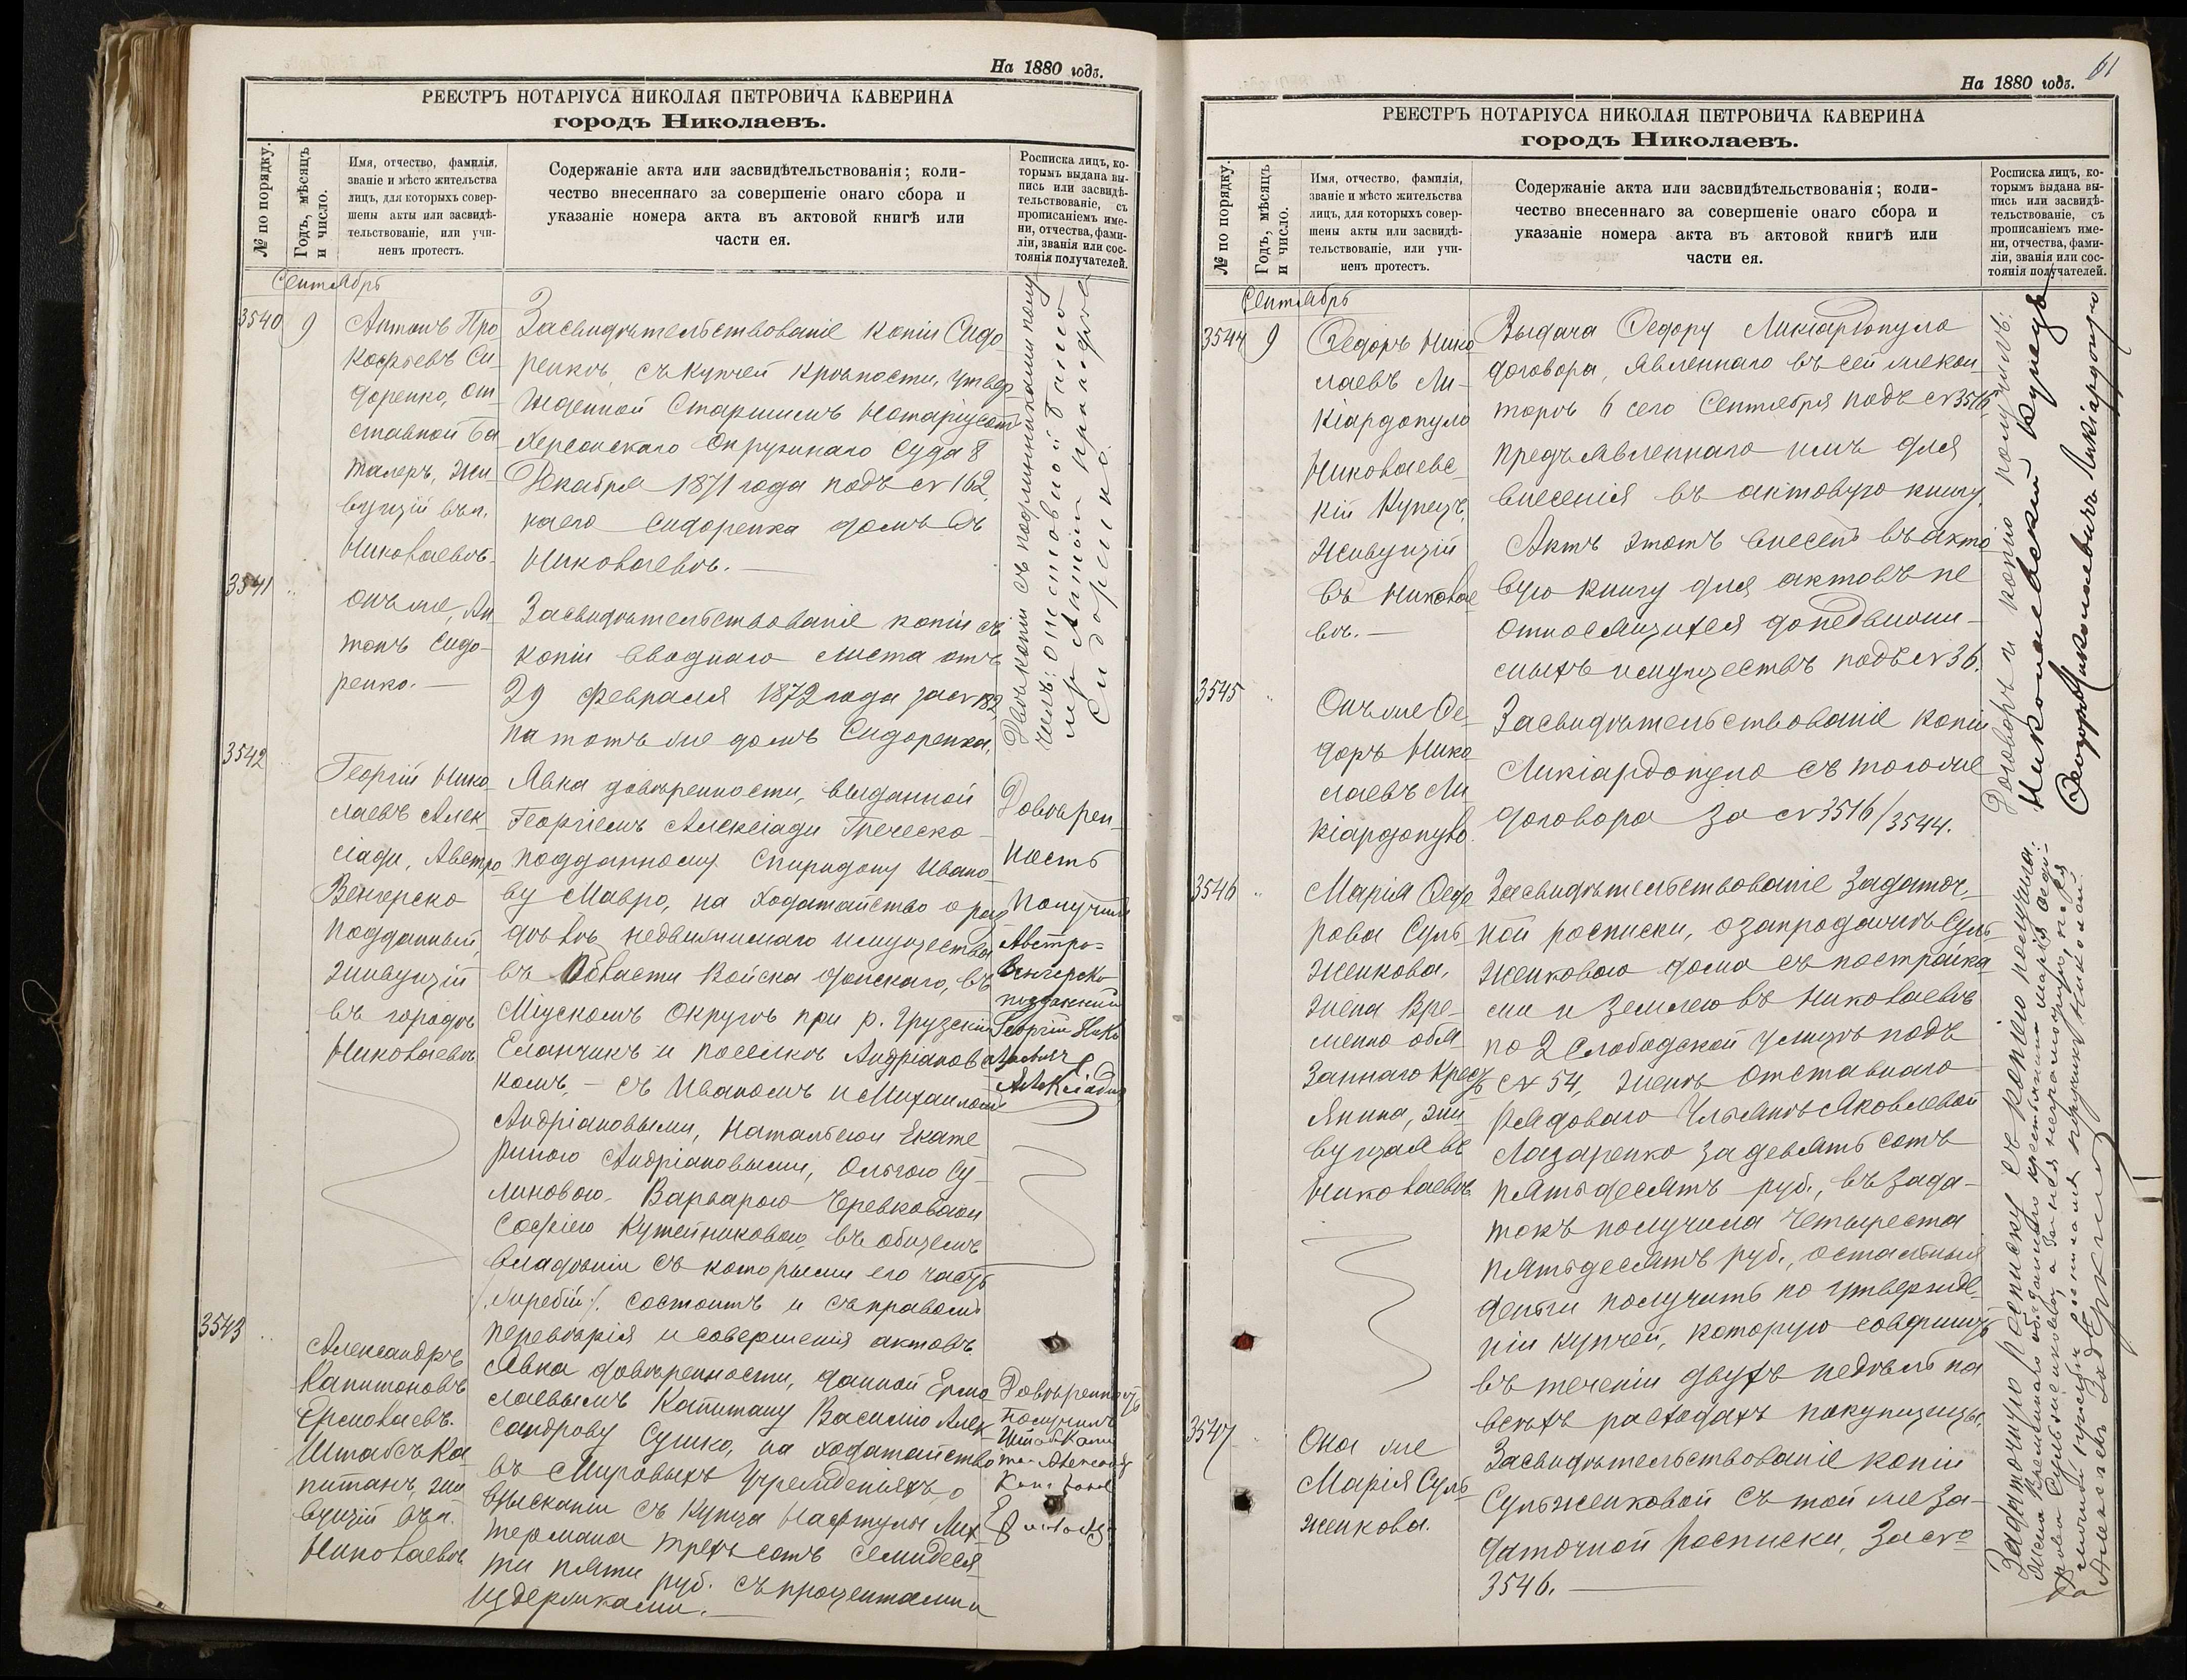 На 1880 годъ.
РЕЕСТРЪ НОТАРІУСА НИКОЛАЯ ПЕТРОВИЧА КАВЕРИНА
городъ Николаевъ.
№ по порядку.
Годъ, мѣсяцъ
и число.
Имя, отчество, фамилія,
званіе и мѣсто жительства
лицъ, для которыхъ совер-
шены акты или засвидѣ-
тельствованіе, или учи-
ненъ протестъ.
Содержаніе акта или засвидѣтельствованія; коли-
чество внесеннаго за совершеніе онаго сбора и
указаніе номера акта въ актовой книгѣ или
части ея.
Росписка лицъ, ко-
торымъ выдана вы-
пись или засвидѣ-
тельствованіе, съ
прописаніемъ име-
ни, отчества, фами-
ліи, званія или сос-
тоянія получателей.
Сентябрь
3540 9
Антонъ Про
кофьевъ Си-
доренко, от
ставной Ба
талеръ, жи-
вущій въ г.
Николаевѣ.
Засвидѣтельствованіе копіи Сидо
ренкѣ, съ купчей крѣпости, утвер
жденной Старшимъ Нотаріусомъ
Херсонскаго Окружнаго Суда 8
Декабря 1871 года подъ № 162,
на его Сидоренка домъ въ
Николаевѣ. —
3541 "
Онъ же, Ан
тонъ Сидо-
ренко. —
Засвидѣтельствованіе копіи съ
копіи вводнаго листа отъ
29 февраля 1872 года за № 182,
на тотъ же домъ Сидоренка.
Двѣ копіи съ подлинниками полу
чилъ: отставной Батале
ръ Антонъ Прокофьев
Сидоренко.
3542
Георгій Нико
лаевъ Алек-
сіади, Австро
Венгерско
подданный,
живущій
въ городѣ
Николаевѣ
Явка довѣренности, выданной
Георгіемъ Алексіади Греческо-
подданному Спиридону Ивано
ву Мавро, на ходатайство о раз
дѣлѣ недвижимаго имущества
въ Области Войска Донскаго, въ
Міускомъ Округѣ при р. Грузскій
Еланчикъ и поселкѣ Андріановс
комъ, — съ Иваномъ и Михаиломъ
Андріановыми, Натальею и Екате
риною Андріановыми, Ольгою Су-
линовою, Варварою Черевковою и
Софіею Кутейниковою, въ общемъ
владѣніи съ которыми его часть
/.жребій./ состоитъ и съ правомъ
перевѣрія и совершенія актовъ.
Довѣрен-
ность
получилъ
Австро-
Венгерско
подданный
Георгій Нико
лаевичъ
Алексіади
3543 "
Александръ
Капитоновъ
Ермолаевъ.
Штабсъ Ка
питанъ, жи
вущій въ г.
Николаевѣ
Явка довѣренности, данной Ермо
лаевымъ Капитану Василію Алек
сандрову Сушко, на ходатайство
въ Мировыхъ Учрежденіяхъ, о
взысканіи съ Купца Нафтулы Лих
термана трехъ сотъ семидеся
ти пяти руб. съ процентами и
издержками. —
Довѣренность
Получилъ
Штабс Капи
танъ Александр
На 1880 годъ.
61
РЕЕСТРЪ НОТАРІУСА НИКОЛАЯ ПЕТРОВИЧА КАВЕРИНА
городъ Николаевъ.
№ по порядку.
Годъ, мѣсяцъ
и число.
Имя, отчество, фамилія,
званіе и мѣсто жительства
лицъ, для которыхъ совер-
шены акты или засвидѣ-
тельствованіе, или учи-
ненъ протестъ.
Содержаніе акта или засвидѣтельствованія; коли-
чество внесеннаго за совершеніе онаго сбора и
указаніе номера акта въ актовой книгѣ или
части ея.
Росписка лицъ, ко-
торымъ выдана вы-
пись или засвидѣ-
тельствованіе, съ
прописаніемъ име-
ни, отчества, фами-
ліи, званія или сос-
тоянія получателей.
Сентябрь
3544 9
Ѳедоръ Нико
лаевъ Ли-
кіардопуло
Николаевс
кій Купецъ,
живущій
въ Николае
вѣ. —
Выдача Ѳедору Ликіардопуло
договора, явленнаго въ сей же кон
торѣ 6 сего Сентября подъ № 3516
предъявленнаго имъ для
внесенія въ актовую книгу.
Актъ этотъ внесенъ въ акто
вую книгу для актовъ не
относящихся до недвижи-
мыхъ имуществъ подъ № 36.
3545 "
Онъ же Ѳе-
доръ Нико
лаевъ Ли
кіардопуло.
Засвидѣтельствованіе копіи
Ликіардопуло съ того же
договора за № 3516/3544.
Договоръ и копію получилъ:
Николаевскій Купецъ
Ѳедоръ Николаевичъ Ликіардопуло
3546 "
Марія Ѳедо
рова Суль-
женкова,
жена Вре-
менно обя
заннаго Крес
янина, жи
вущая въ
Николаевѣ
Засвидѣтельствованіе задаточ-
ной росписки, о запродажѣ Суль-
женковою дома съ постройка
ми и землею въ Николаевѣ
по 2 Слободской улицѣ подъ
№ 54, женѣ отставнаго
рядоваго Ульянѣ Яковлевой
Лазаренко за девять сотъ
пятьдесятъ руб., въ зада-
токъ получила четыреста
пятьдесятъ руб., остальныя
деньги получить по утвержде
ніи купчей, которую совершить
въ теченіи двухъ недѣль на
всѣхъ расходахъ покупщицы.
3547
Она же
Марія Суль
женкова.
Засвидѣтельствованіе копіи
Сульженковой съ той же за-
даточной росписки, за №
3546. —
Задаточную росписку съ копіею получила:
Жена Временного обязаннаго крестьянина Марія Ѳедо-
рова Сульженкова, а за нея неграмотную, по ея
личной просьбѣ